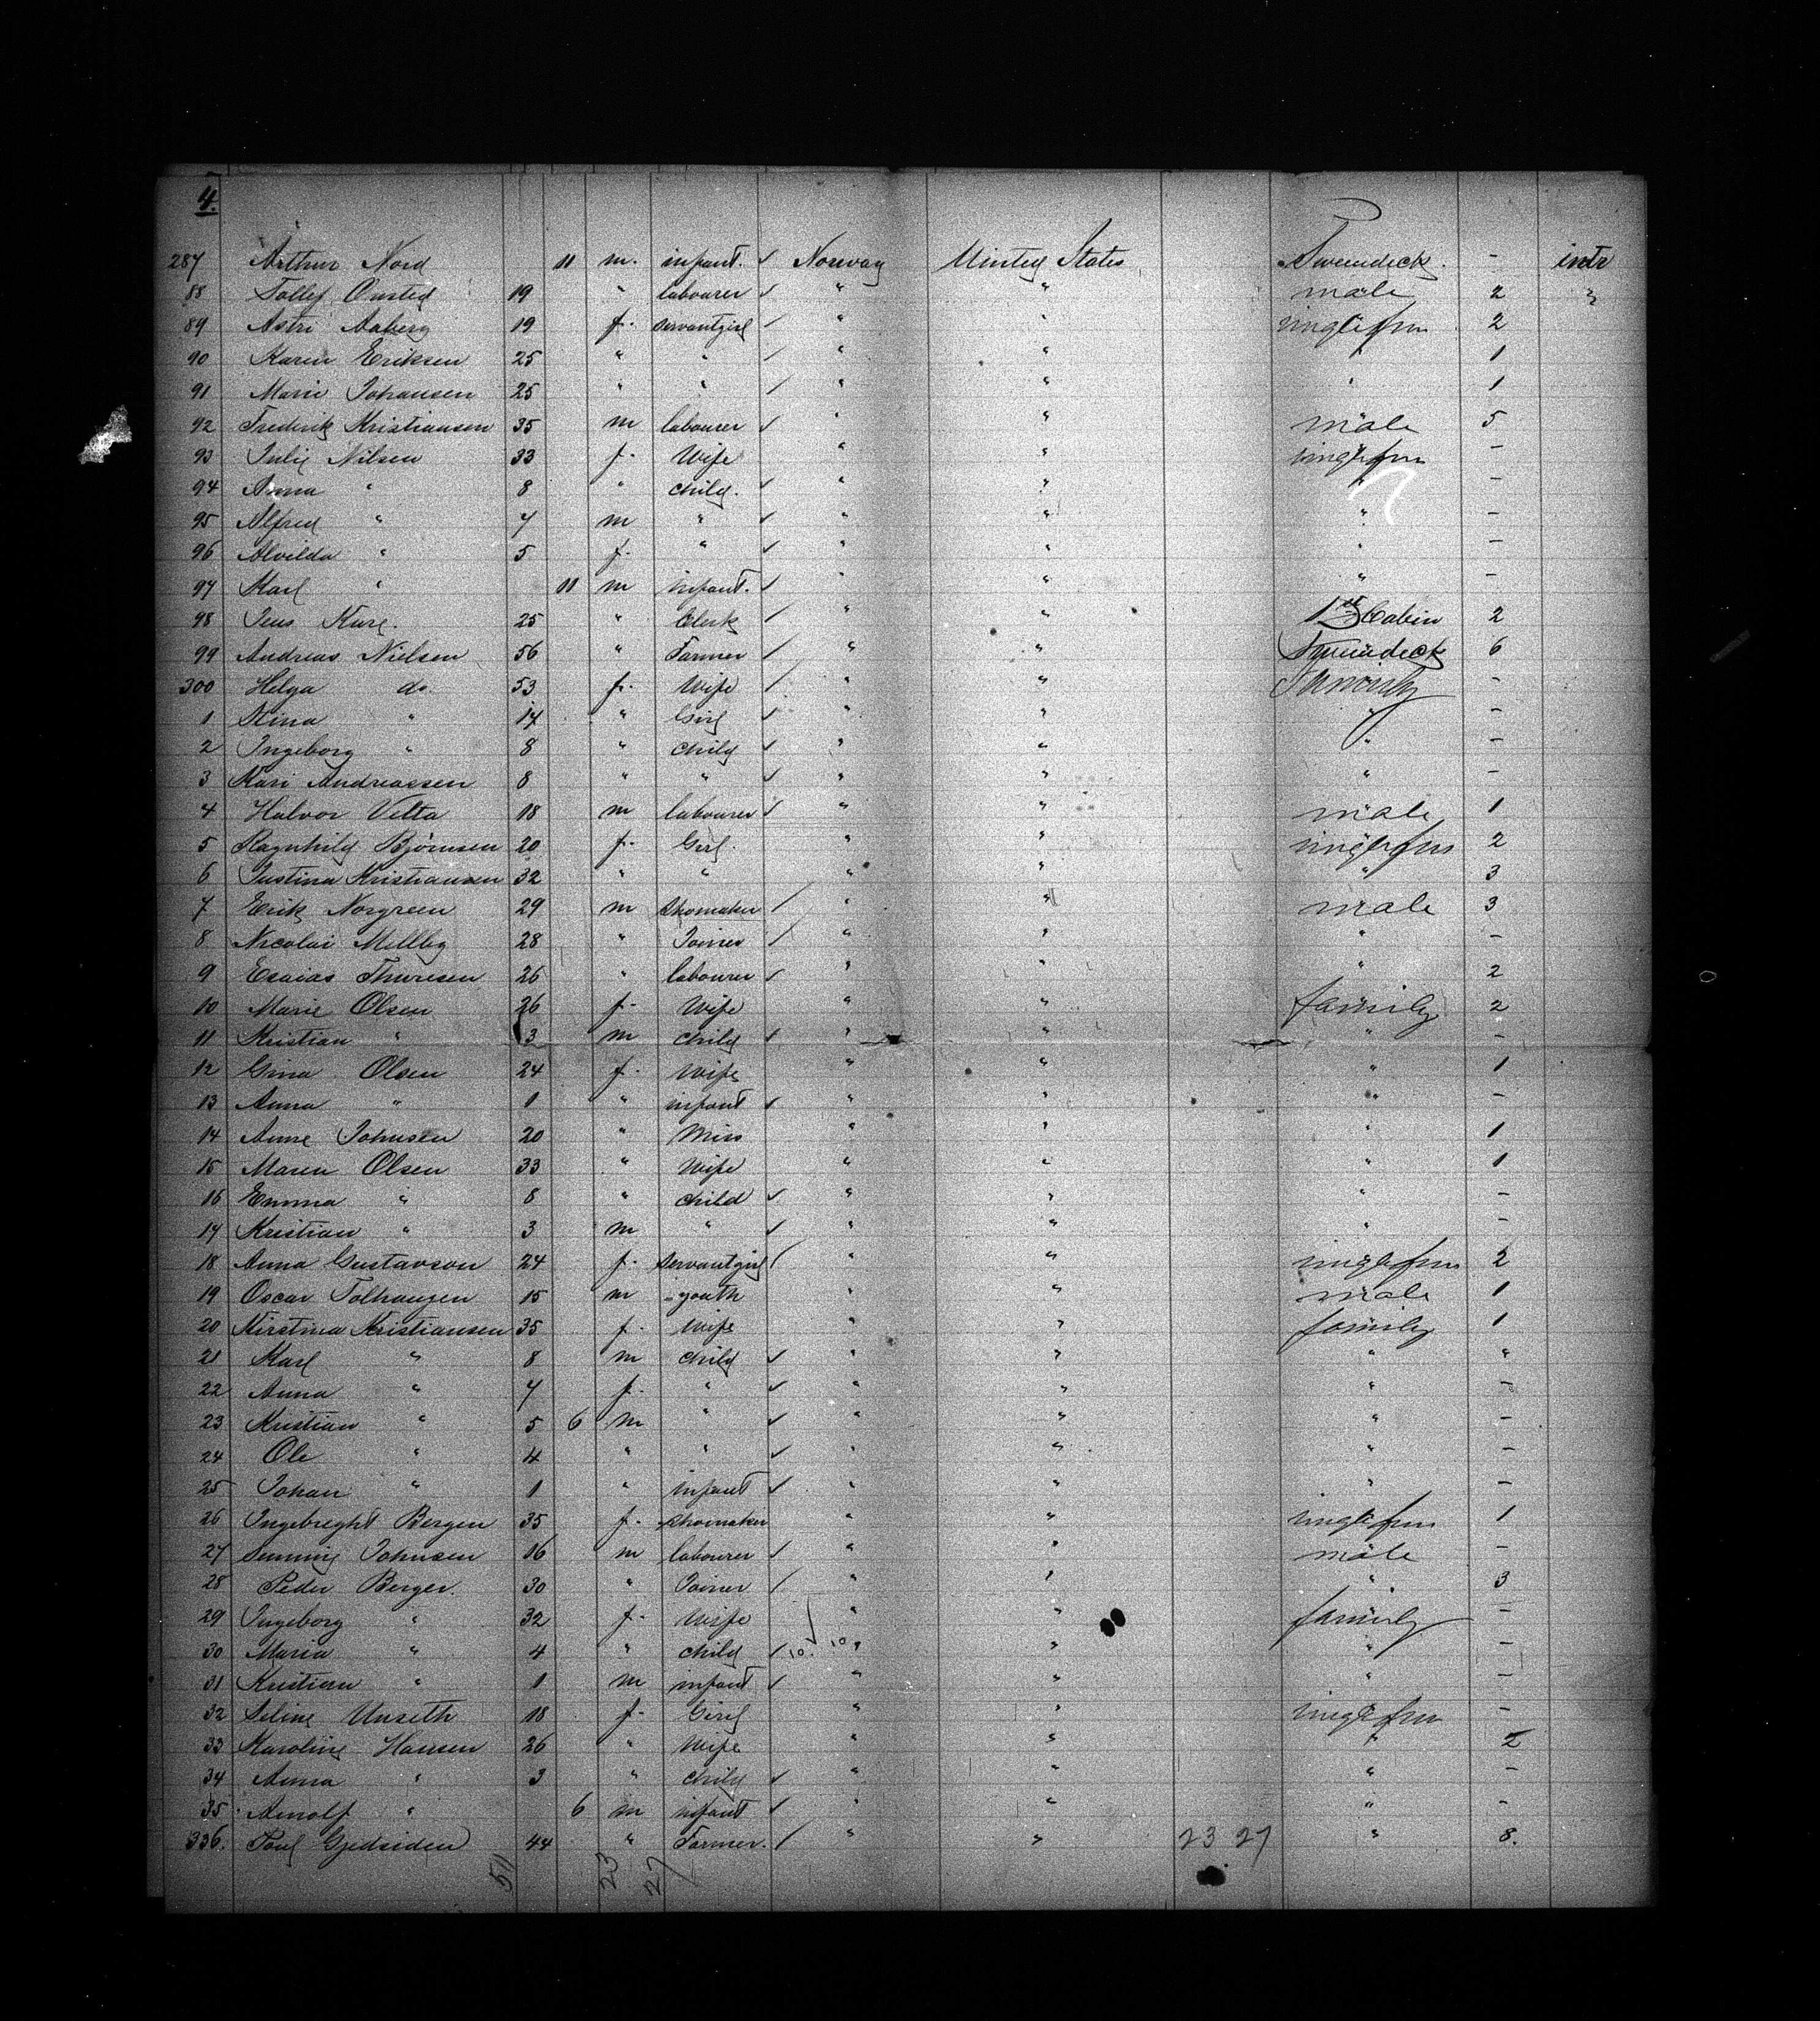 4.
287 Arthur Nord 11 m. infant. ✓ Norway United States Tweendeck. - intr
88 Tollef Onsted 19 " labourer ✓ " " male 2 "
89 Astri Aaberg 19 f. servantgirl ✓ " " single fm 2
90 Karen Eriksen 25 " " ✓ " " " 1
91 Marie Johansen 25 " " ✓ " " " 1
92 Frederik Kristiansen 35 m labourer ✓ " " male 5
93 Julie Nilsen 33 f. Wife " " single fm -
94 Anna " 8 " child. ✓ " " " -
95 Alfred " 7 m " ✓ " " " -
96 Alvilda " 5 f. " ✓ " " " -
97 Karl " 11 m infant. ✓ " " " -
98 Jens Kure. 25 " Clerk ✓ " " 1st Cabin 2
99 Andreas Nielsen 56 " Farmer ✓ " " Tweendeck 6
300 Helga do. 53 f. Wife ✓ " " Family -
1 Stina " 14 " Girl ✓ " " " -
2 Ingeborg " 8 " child ✓ " " " -
3 Kari Andreassen 8 " " ✓ " " " -
4 Halvor Vetta 18 m labourer ✓ " " male 1
5 Ragnhild Bjørnsen 20 f. Girl. " " single fm 2
6 Justina Kristiansen 32 " " " " " 3
7 Erik Norgreen 29 m shomaker ✓ " " male 3
8 Nicolai Mellby 28 " Joiner ✓ " " " -
9 Esaias Thuresen 26 " labourer ✓ " " " 2
10 Marie Olsen 26 f. Wife " " family 2
11 Kristian " 3 m child ✓ " " " -
12 Gina Olsen 24 f. Wife " " " 1
13 Anna " 1 " infant ✓ " " " -
14 Anne Johnsen 20 " Miss " " " 1
15 Maren Olsen 33 " Wife " " " 1
16 Emma " 8 " child ✓ " " " -
17 Kristian " 3 m " ✓ " " " -
18 Anna Gustavson 24 f. servantgirl ✓ " " single fm 2
19 Oscar Tolhaugen 15 m youth " " male 1
20 Kirstina Kristiansen 35 f. Wife " " family 1
21 Karl " 8 m child ✓ " " " "
22 Anna " 7 f. " ✓ " " " -
23 Kristian " 5 6 m " ✓ " " " -
24 Ole " 4 " " ✓ " " " -
25 Johan " 1 " infant ✓ " " " -
26 Ingebreght Bergen 35 f. shomaker " " single fm 1
27 Johnsen 16 m labourer ✓ " " male -
28 Peder Berger. 30 " Joiner ✓ " " " 3
29 Ingeborg " 32 f. Wife ✓ " " family -
30 Maria " 4 " child ✓ 10. 10 " " " -
31 Kristian " 1 m infant ✓ " " " -
32 Seline Unseth 18 f. Girl " " single fm -
33 Karoline Hansen 26 " Wife " " " 2
34 Anna " 3 " child ✓ " " " -
35 Arnolf " 6 m infant ✓ " " " -
336. Poul Gjedsiden 44 " Farmer. ✓ " " 23 27 " 8.
511 23 27